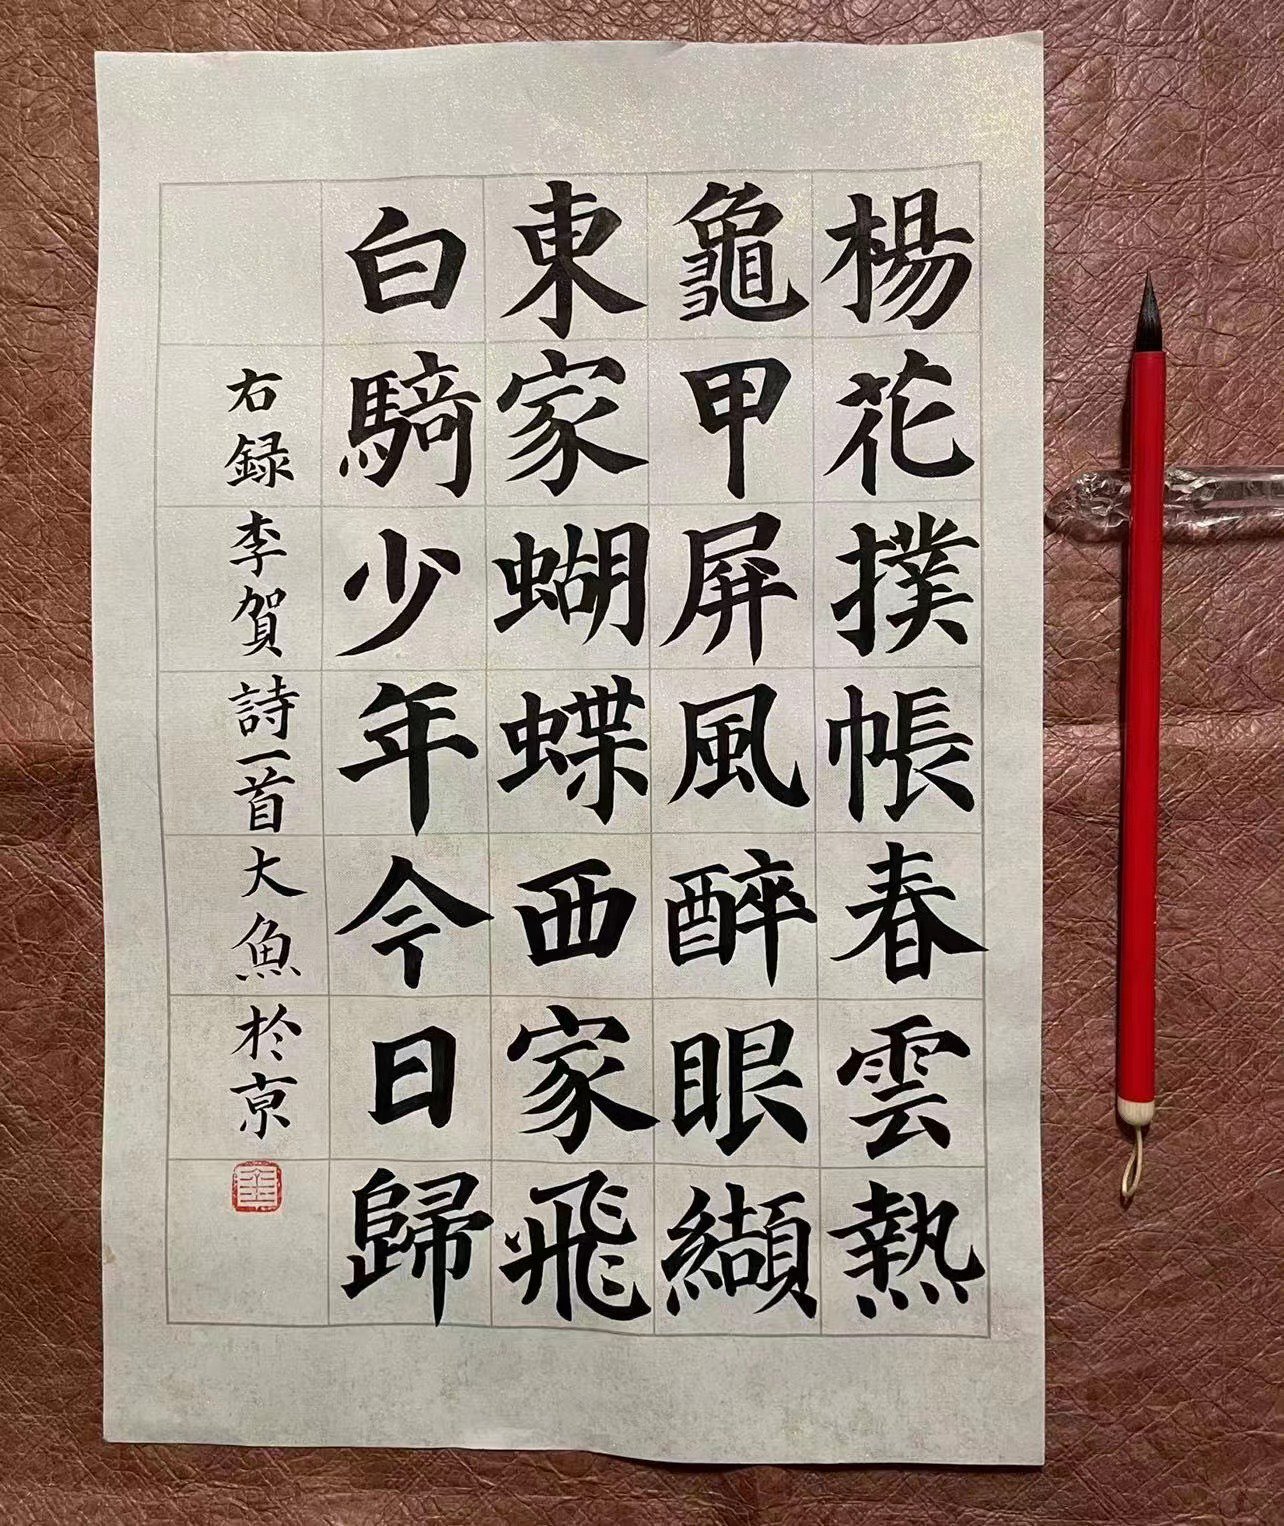 楊花撲帳春雲熱
龜甲屏風醉眼纈
東家蝴蝶西家飛
白騎少年今日歸
右録李賀詩一首大魚於京